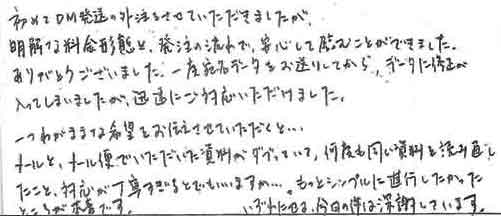 初めてDM発送の外注をさせていただきましたが、
明解な料金形態と、発注の流れで、安心して臨むことができました。
ありがとうございました。一度宛名データをお送りしてから、データに修正が
入ってしまいましたが、迅速にご対応いただけました。
一つわがままな希望をお伝えさせていただくと…
メールと、メール便でいただいた資料がダブっていて、何度も同じ資料を読み直し
たこと、対応が丁寧すぎるとでもいいますか…。もっとシンプルに進行したかった
ところが本音です。 いずれにせよ、今回の件は深謝しています。